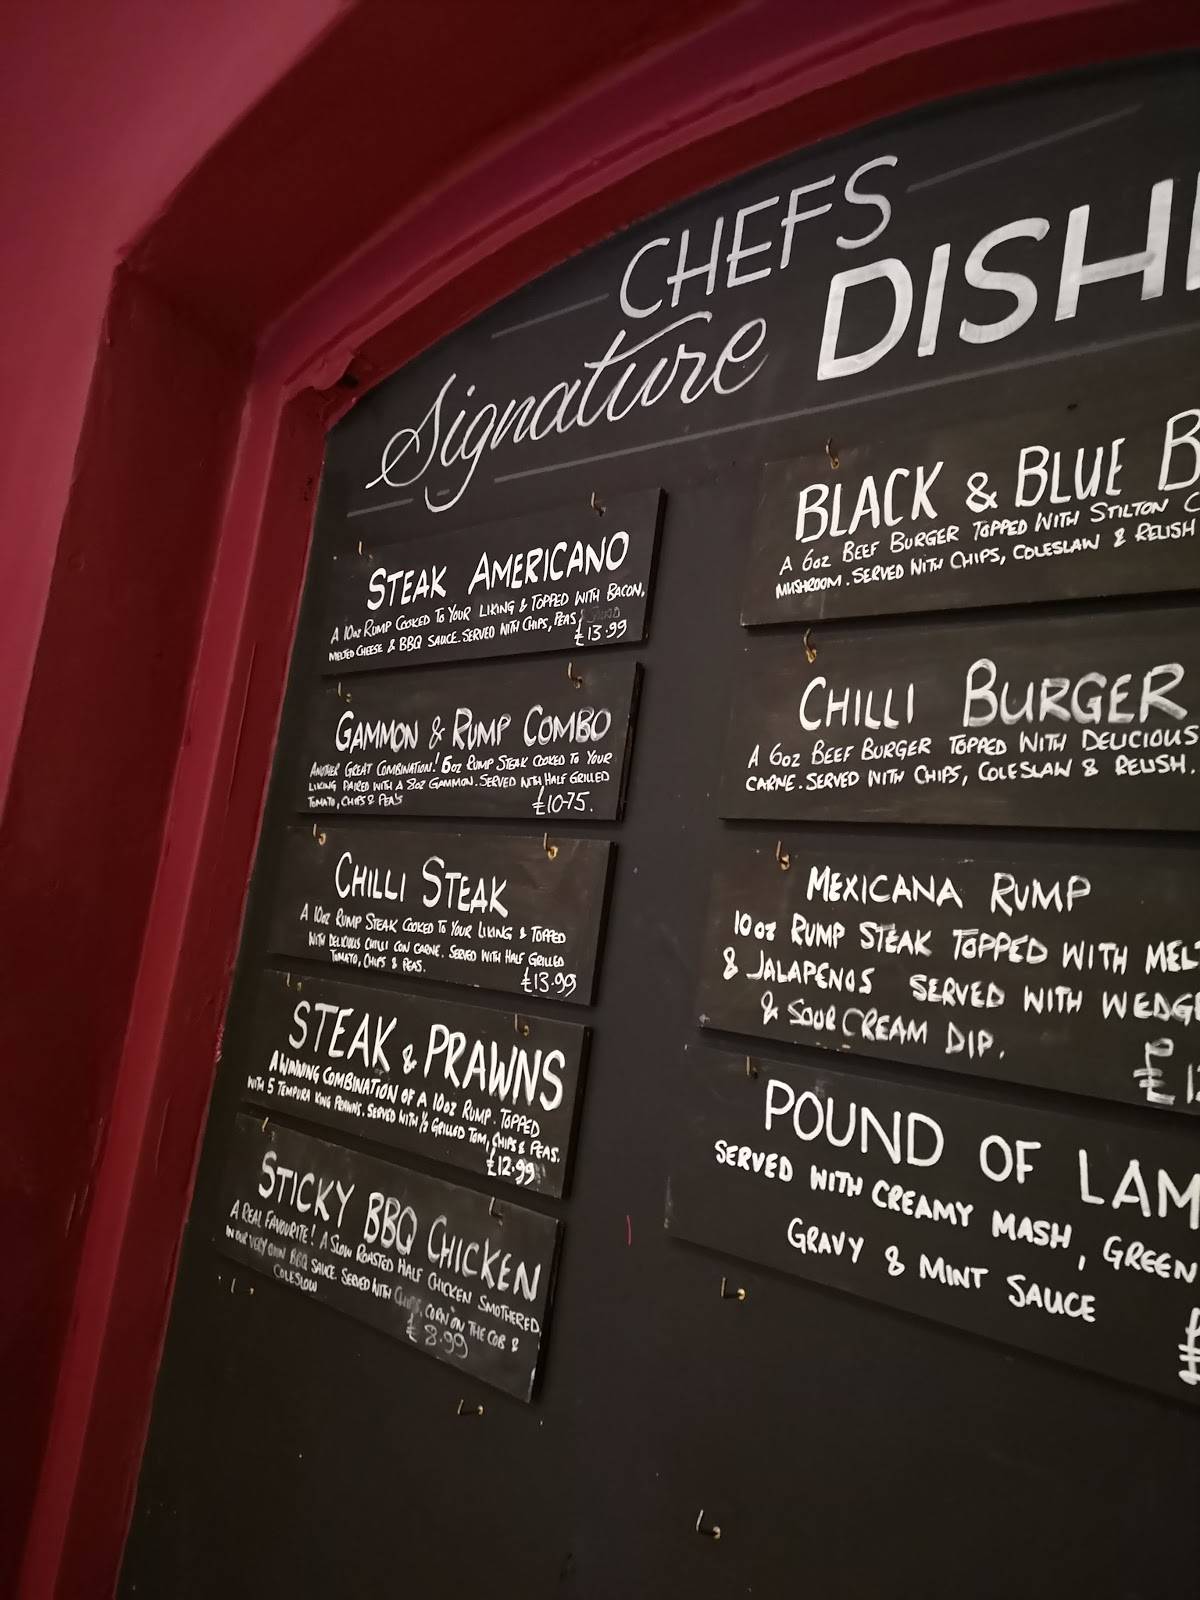 CHEFS
Signature DISH
STEAK AMERICANO
A 10oz RUMP COOKED TO YOUR LIKING & TOPPED WITH BACON,
MELTED CHEESE & BBQ SAUCE. SERVED WITH CHIPS, PEAS
£13.99
GAMMON & RUMP COMBO
ANOTHER GREAT COMBINATION! 5oz RUMP STEAK COOKED TO YOUR
LIKING PAIRED WITH A 8oz GAMMON. SERVED WITH HALF GRILLED
TOMATO, CHIPS & PEAS
£10.75.
CHILLI STEAK
A 10oz RUMP STEAK COOKED TO YOUR LIKING & TOPPED
WITH DELICIOUS CHILLI CON CARNE. SERVED WITH HALF GRILLED
TOMATO, CHIPS & PEAS.
£13.99
STEAK & PRAWNS
A WINNING COMBINATION OF A 10oz RUMP. TOPPED
WITH 5 TEMPURA KING PRAWNS. SERVED WITH 1/2 GRILLED TOM, CHIPS & PEAS.
£12.99
STICKY BBQ CHICKEN
A REAL FAVOURITE! A SLOW ROASTED HALF CHICKEN SMOTHERED
IN OUR VERY OWN BBQ SAUCE. SERVED WITH CHIPS, CORN ON THE COB &
COLESLOW
£8.99
BLACK & BLUE B
A 6oz BEEF BURGER TOPPED WITH STILTON C
MUSHROOM. SERVED WITH CHIPS, COLESLAW & RELISH
CHILLI BURGER
A 6oz BEEF BURGER TOPPED WITH DELICIOUS
CARNE. SERVED WITH CHIPS, COLESLAW & RELISH.
MEXICANA RUMP
10oz RUMP STEAK TOPPED WITH MEL
& JALAPENOS SERVED WITH WEDG
& SOUR CREAM DIP.
£1
POUND OF LAM
SERVED WITH CREAMY MASH, GREEN
GRAVY & MINT SAUCE
£